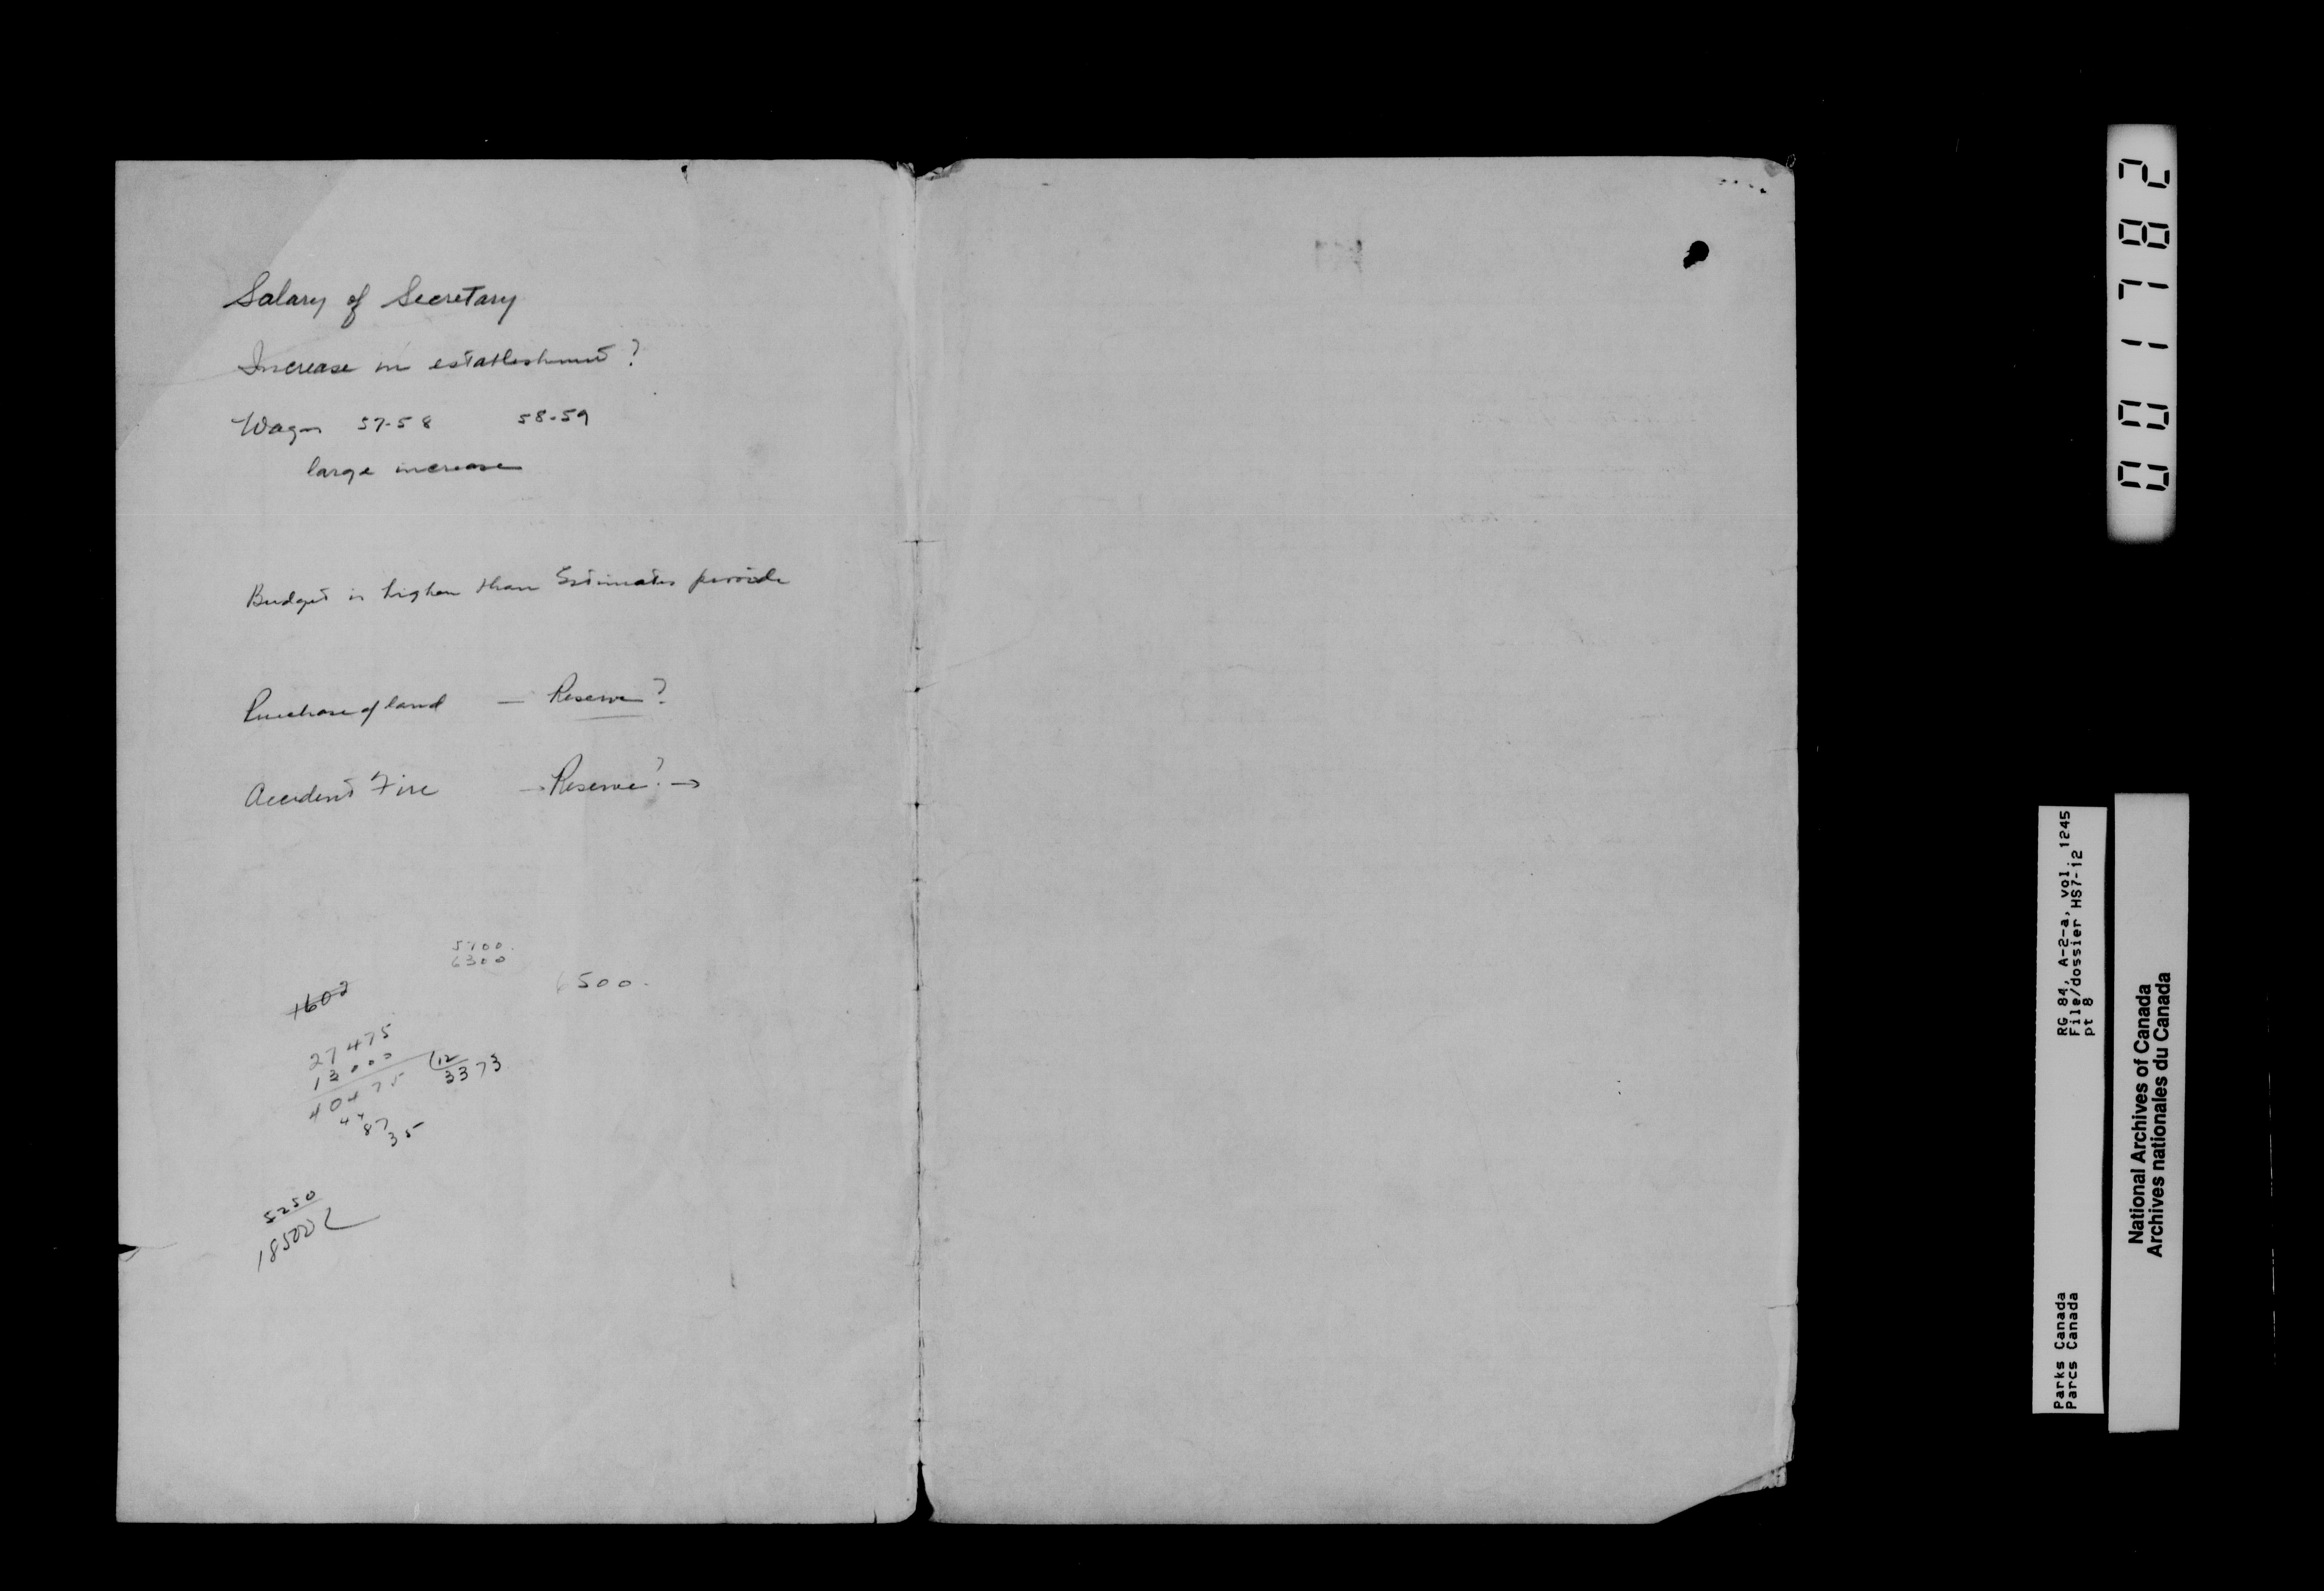 Salary of Secretary
Increase in establishment ?
Wages 57-58 58-59
large increase
Budget is higher than Estimates provide
Purchase of land — Reserve ?
Accident Fire → Reserve ? →
5700.
6300
6500.
27475
13000
40475 12
3373
44
87
35
5250
18500
001782
RG 84, A-2-a, vol. 1245
File/dossier HS7-12
pt 8
Parks Canada
Parcs Canada
National Archives of Canada
Archives nationales du Canada